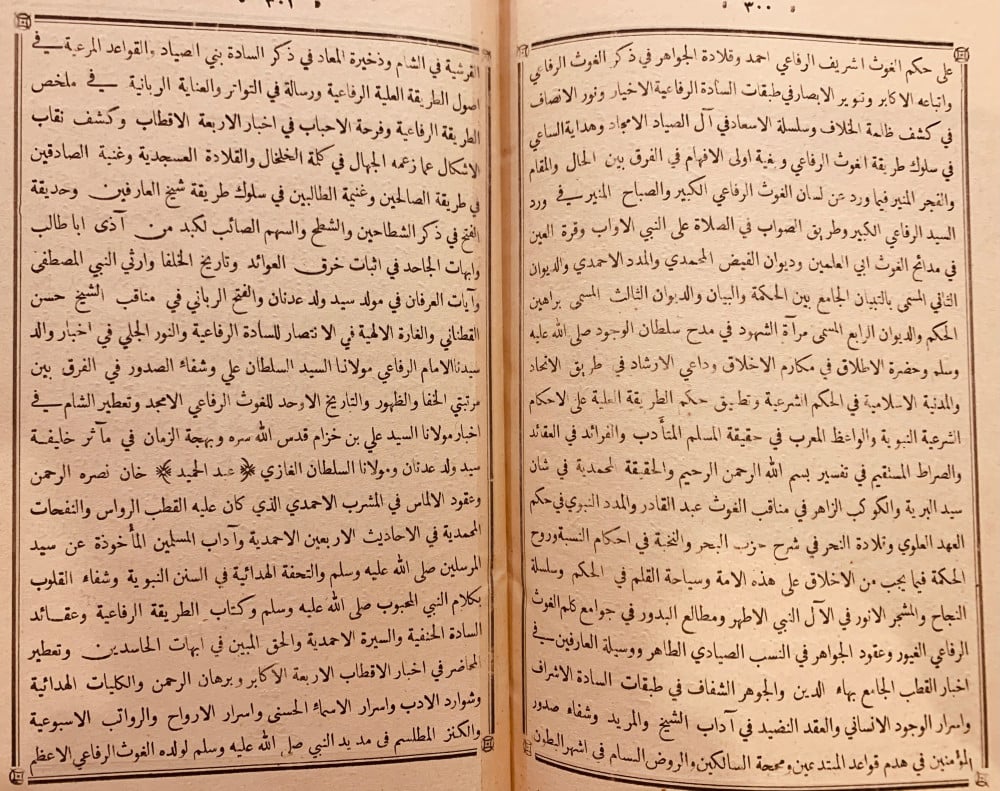 ٣٠٠
على حكم الغوث الشريف الرفاعي احمد وقلادة الجواهر في ذكر الغوث الرفاعي
واتباعه الاكابر وتنوير الابصار في طبقات السادة الرفاعية الاخيار ونور الانصاف
في كشف ظلمة الخلاف وسلسلة الاسعاد في آل الصياد الامجاد وهداية الساعي
في سلوك طريقة الغوث الرفاعي وبغية اولى الافهام في الفرق بين الحال والمقام
والفجر المنير فيما ورد عن لسان الغوث الرفاعي الكبير والصباح المنير في ورد
السيد الرفاعي الكبير وطريق الصواب في الصلاة على النبي الاواب وقرة العين
في مدائح الغوث ابي العلمين وديوان الفيض المحمدي والمدد الاحمدي والديوان
الثاني المسمى بالتبيان الجامع بين الحكمة والبيان والديوان الثالث المسمى براهين
الحكم والديوان الرابع المسمى مرآة الشهود في مدح سلطان الوجود صلى الله عليه
وسلم وحضرة الاطلاق في مكارم الاخلاق وداعي الارشاد في طريق الاتحاد
والمدنية الاسلامية في الحكم الشرعية وتطبيق حكم الطريقة العلية على الاحكام
الشرعية النبوية والواعظ المعرب في حقيقة المسلم المتأدب والفرائد في العقائد
والصراط المستقيم في تفسير بسم الله الرحمن الرحيم والحقيقة المحمدية في شان
سيد البرية والكوكب الزاهر في مناقب الغوث عبد القادر والمدد النبوي في حكم
العهد العلوي وقلادة النحر في شرح حزب البحر والنخبة في احكام النسبة وروح
الحكمة فيما يجب من الاخلاق على هذه الامة وسياحة القلم في الحكم وسلسلة
النجاح والمشجر الانور في الآل النبي الاطهر ومطالع البدور في جوامع كلم الغوث
الرفاعي الغيور وعقود الجواهر في النسب الصيادي الطاهر ووسيلة العارفين في
اخبار القطب الجامع بهاء الدين والجوهر الشفاف في طبقات السادة الاشراف
واسرار الوجود الانساني والعقد النضيد في آداب الشيخ والمريد وشفاء صدور
المؤمنين في هدم قواعد المبتدعين ومحجة السالكين والروض البسام في اشهر البطون
٣٠١
القرشية في الشام وذخيرة المعاد في ذكر السادة بني الصياد والقواعد المرعية في
اصول الطريقة العلية الرفاعية ورسالة في التواتر والعناية الربانية في ملخص
الطريقة الرفاعية وفرحة الاحباب في اخبار الاربعة الاقطاب وكشف نقاب
الاشكال عما زعمه الجهال في كلة الخلخال والقلادة العسجدية وغنية الصادقين
في طريقة الصالحين وغنيمة الطالبين في سلوك طريقة شيخ العارفين وحديقة
الفتح في ذكر الشطاحين والشطح والسهم الصائب لكبد من آذى ابا طالب
وابهات الجاحد في اثبات خرق العوائد وتاريخ الخلفا وارثي النبي المصطفى
وآيات العرفان في مولد سيد ولد عدنان والفتح الرباني في مناقب الشيخ حسن
القطناني والغارة الالهية في الانتصار للسادة الرفاعية والنور الجلي في اخبار والد
سيدنا الامام الرفاعي مولانا السيد السلطان علي وشفاء الصدور في الفرق بين
مرتبتي الخفا والظهور والتاريخ الاوحد للغوث الرفاعي الامجد وتعطير الشام في
اخبار مولانا السيد علي بن خزام قدس الله سره وبهجة الزمان في مآثر خليفة
سيد ولد عدنان ومولانا السلطان الغازي ﴿عبد الحميد﴾ خان نصره الرحمن
وعقود الالماس في المشرب الاحمدي الذي كان عليه القطب الرواس والنفحات
المحمدية في الاحاديث الاربعين الاحمدية وآداب المسلمين المأخوذة عن سيد
المرسلين صلى الله عليه وسلم والتحفة الهدائية في السنن النبوية وشفاء القلوب
بكلام النبي المحبوب صلى الله عليه وسلم وكتاب الطريقة الرفاعية وعقائد
السادة الحنفية والسيرة الاحمدية والحق المبين في ابهات الحاسدين وتعطير
المحاضر في اخبار الاقطاب الاربعة الاكابر وبرهان الرحمن والكليات الهدائية
وشوارد الادب واسرار الاسماء الحسنى واسرار الارواح والرواتب الاسبوعية
والكنز المطلسم في مد يد النبي صلى الله عليه وسلم لولده الغوث الرفاعي الاعظم